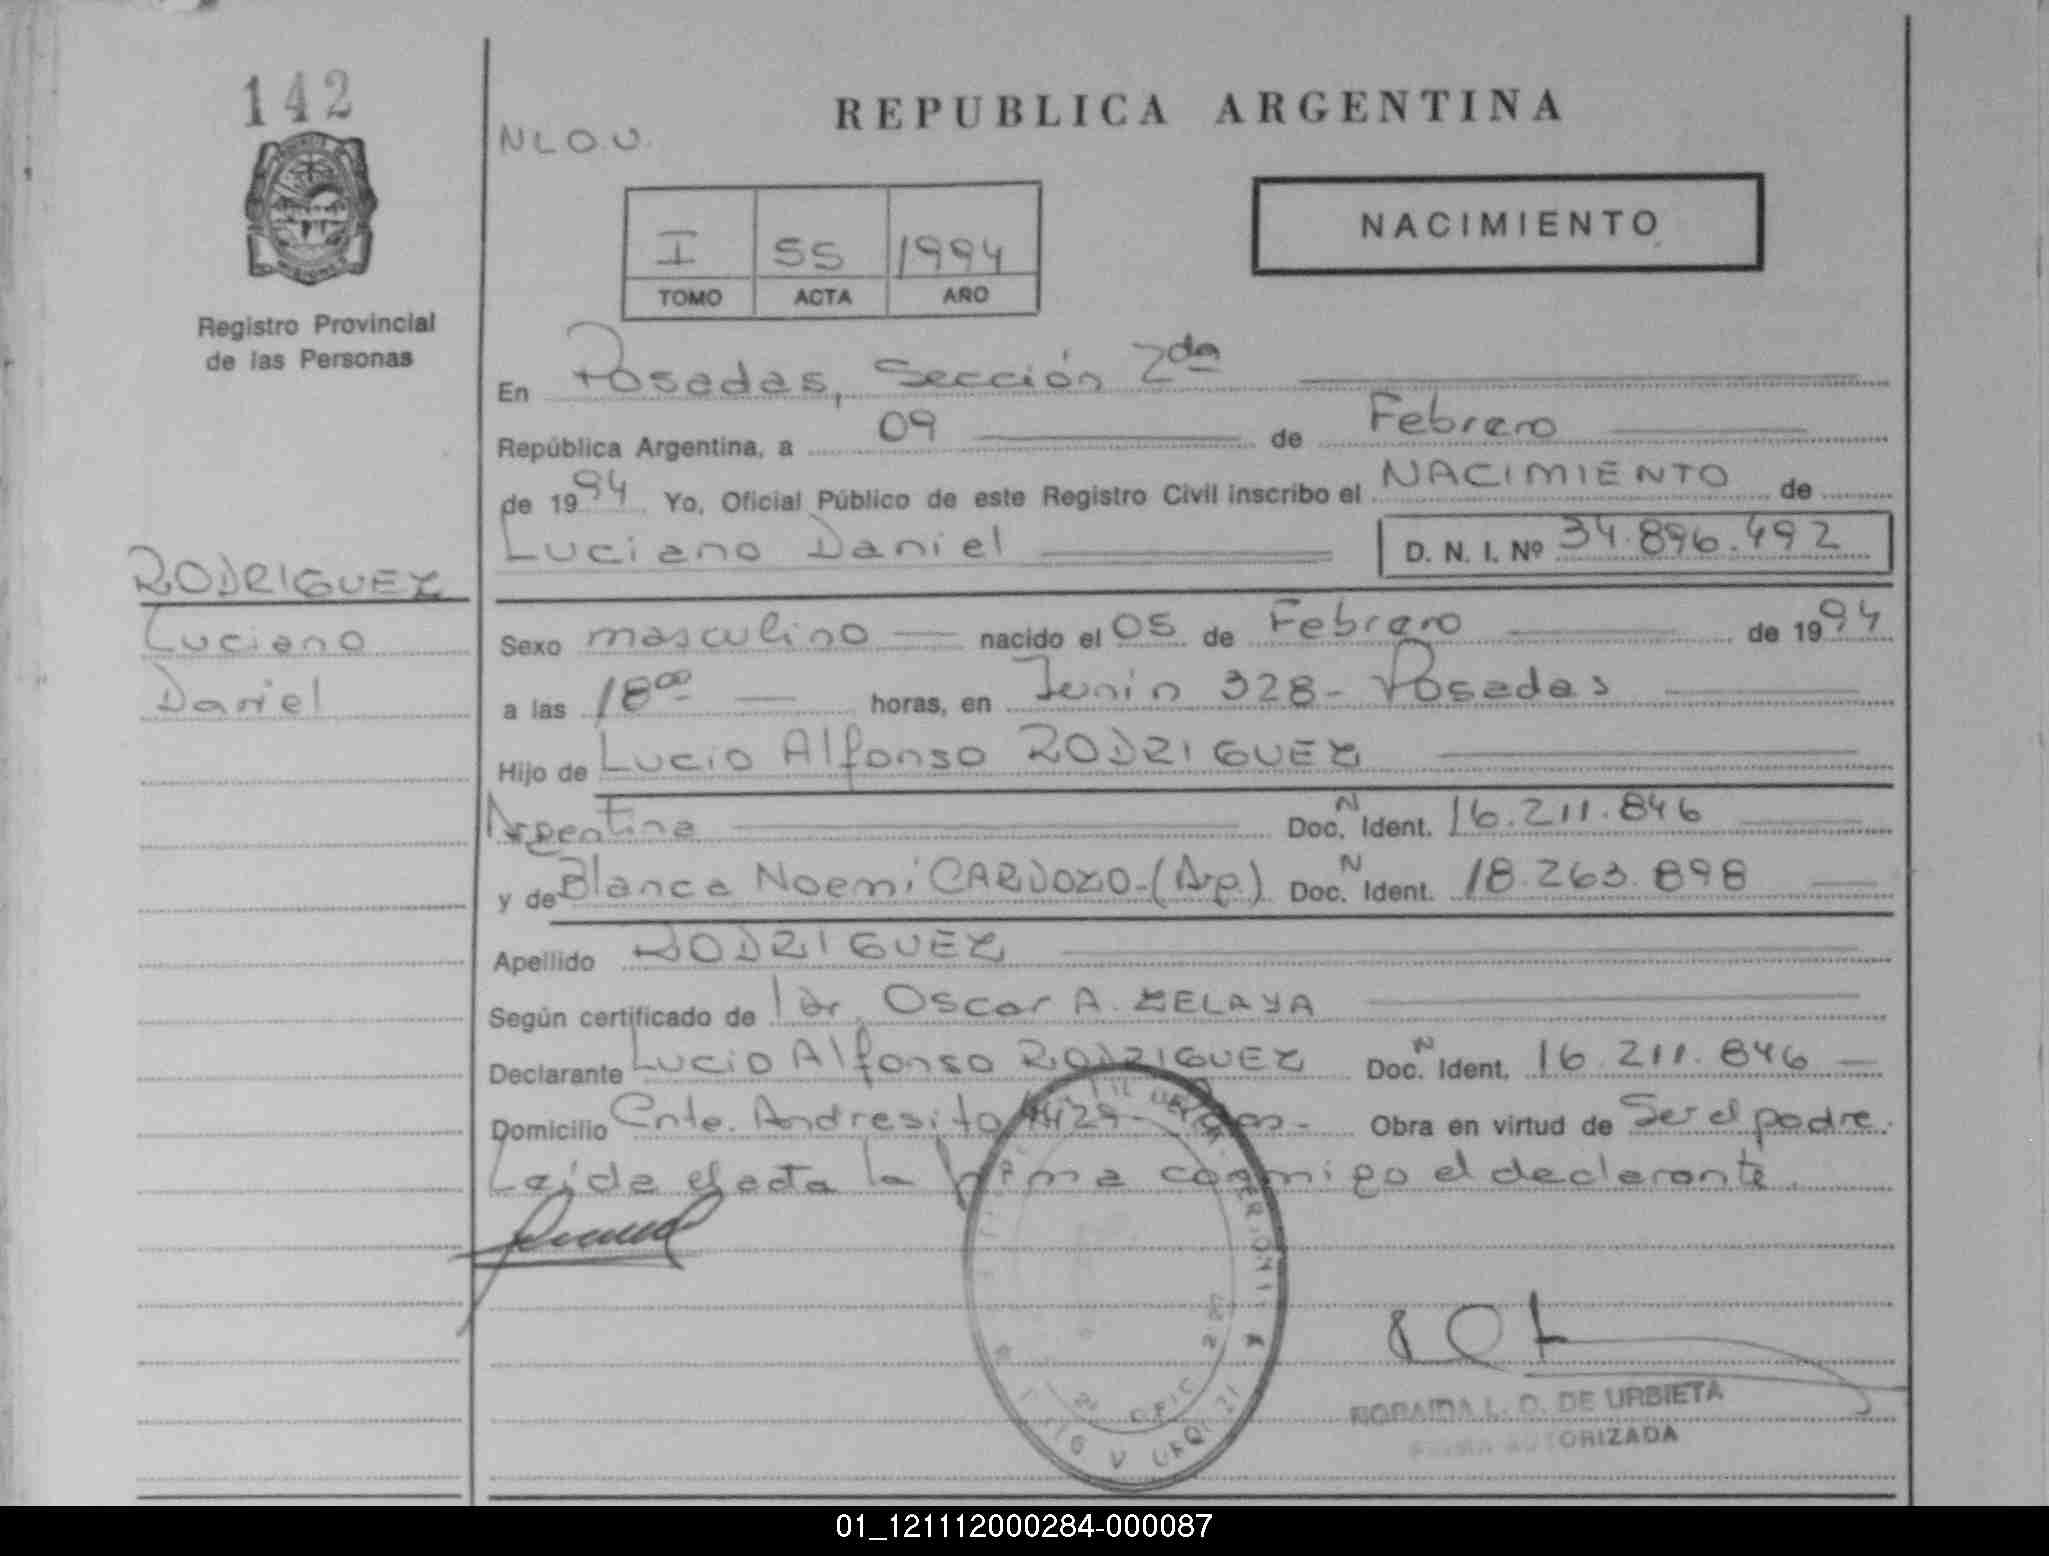 142
REPUBLICA ARGENTINA
N L O. U.
NACIMIENTO
I 55 1994
TOMO ACTA AÑO
Registro Provincial
de las Personas
En Posadas, Sección 2da
República Argentina, a 09 de Febrero
de 1994 Yo, Oficial Público de este Registro Civil inscribo el NACIMIENTO de
Luciano Daniel D. N. I. Nº 34.896.492
RODRIGUEZ
Luciano
Daniel
Sexo masculino nacido el 05 de Febrero de 1994
a las 18 00 horas, en Junín 328 - Posadas
Hijo de Lucio Alfonso RODRIGUEZ
Argentina Doc. N Ident. 16.211.846
y de Blanca Noemí CARDOZO - (Arg.) Doc. N Ident. 18.263.898
Apellido RODRIGUEZ
Según certificado de Dr. Oscar A. ZELAYA
Declarante Lucio Alfonso RODRIGUEZ Doc. N Ident. 16.211.846
Domicilio Cnte. Andresito Obra en virtud de Ser el padre.
Leída el acta la firma conmigo el declarante.
L. O. DE URBIETA
FIRMA AUTORIZADA
01_121112000284-000087